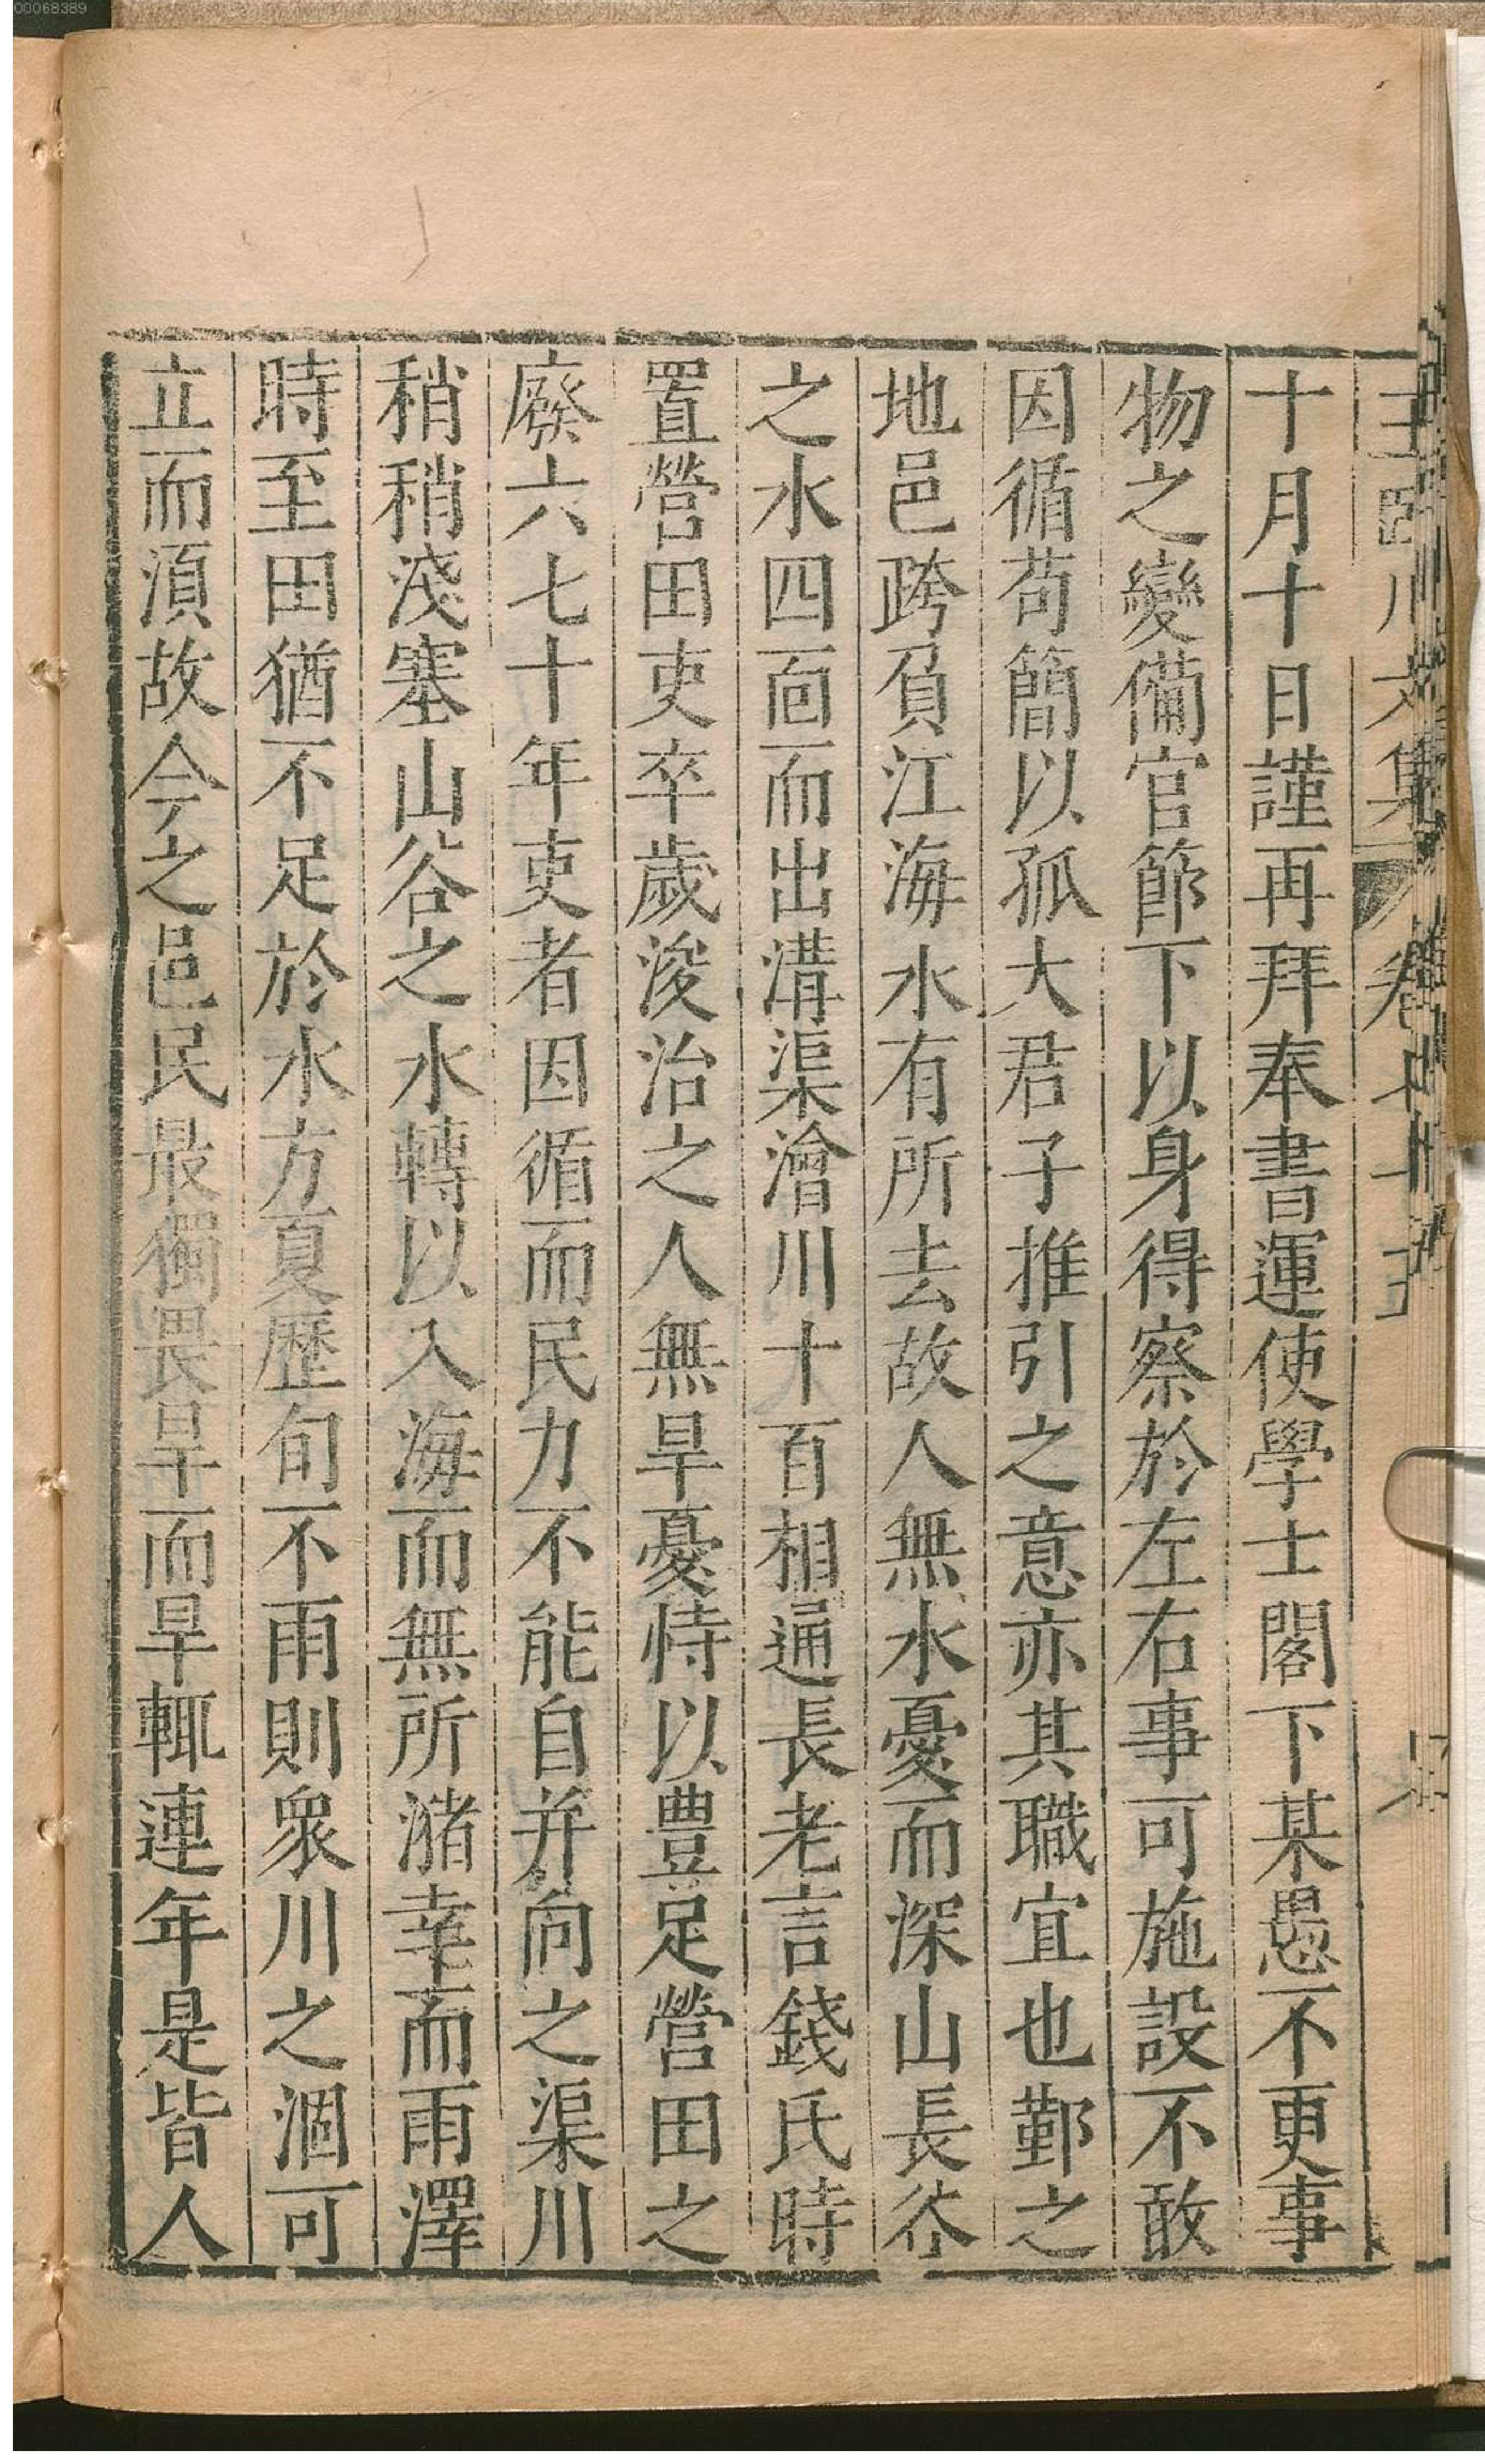 00068389
十月十日謹再拜奉書運使學士閣下某愚不更事
物之變備官節下以身得察於左右事可施設不敢
因循苟簡以孤大君子推引之意亦其職宜也鄞之
地邑跨負江海水有所去故人無水憂而深山長谷
之水四面而出溝渠澮川十百相通長老言錢氏時
置營田吏卒歲浚治之人無旱憂恃以豊足營田之
廢六七十年吏者因循而民力不能自并向之渠川
稍稍淺塞山谷之水轉以入海而無所瀦幸而雨澤
時至田猶不足於水方夏歷旬不雨則衆川之涸可
立而須故今之邑民最獨畏旱而旱輒連年是皆人